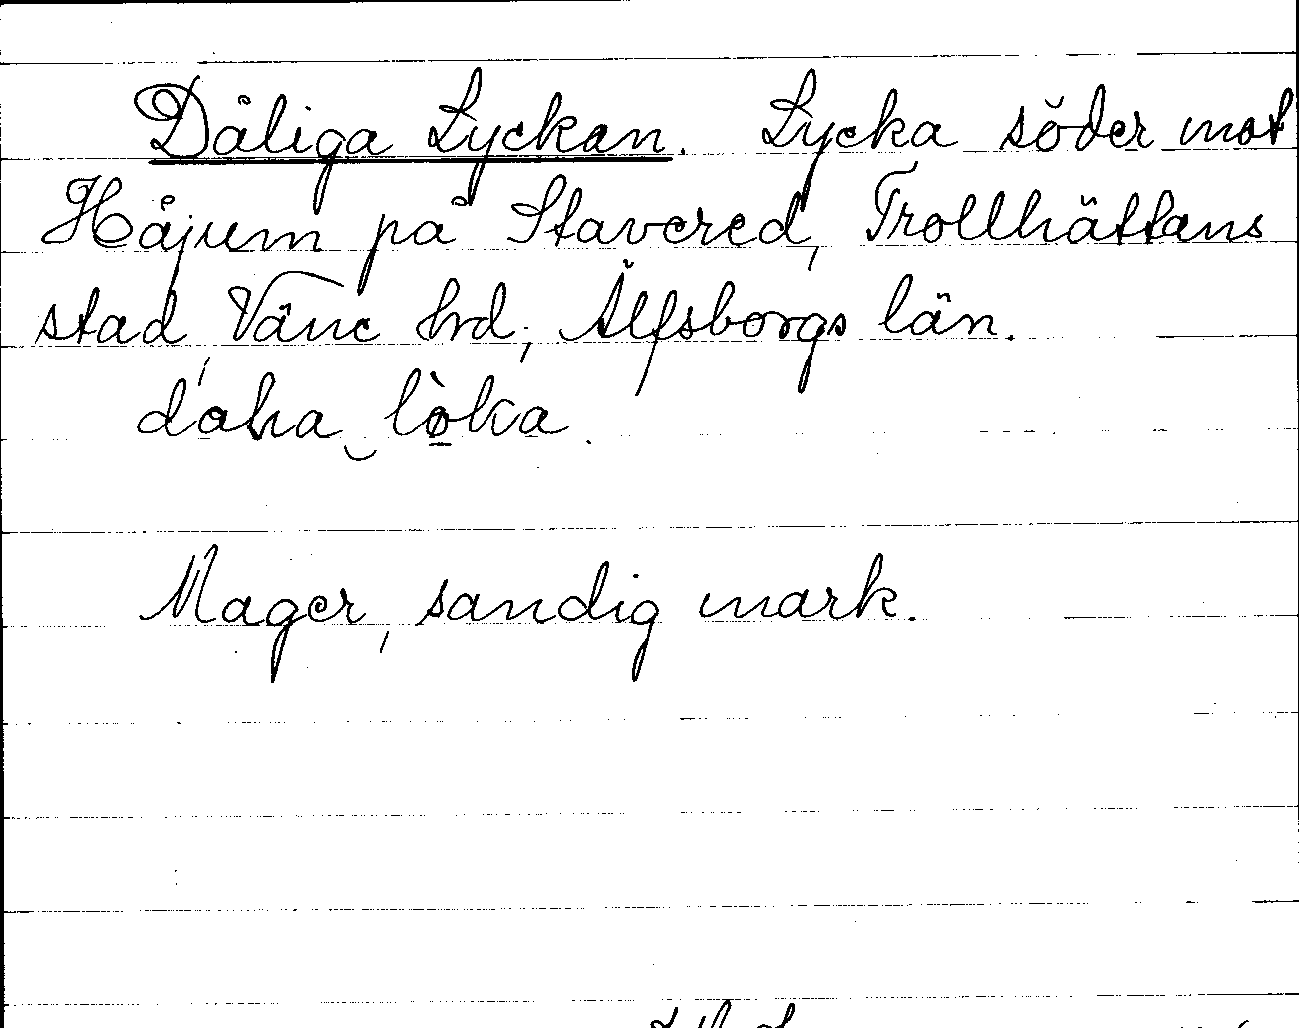 Dåliga Lyckan. Lycka söder mot
Håjum på Stavered, Trollhättans
stad, Väne hrd, Älfsborgs län.
daha lòka.
Mager, sandig mark.